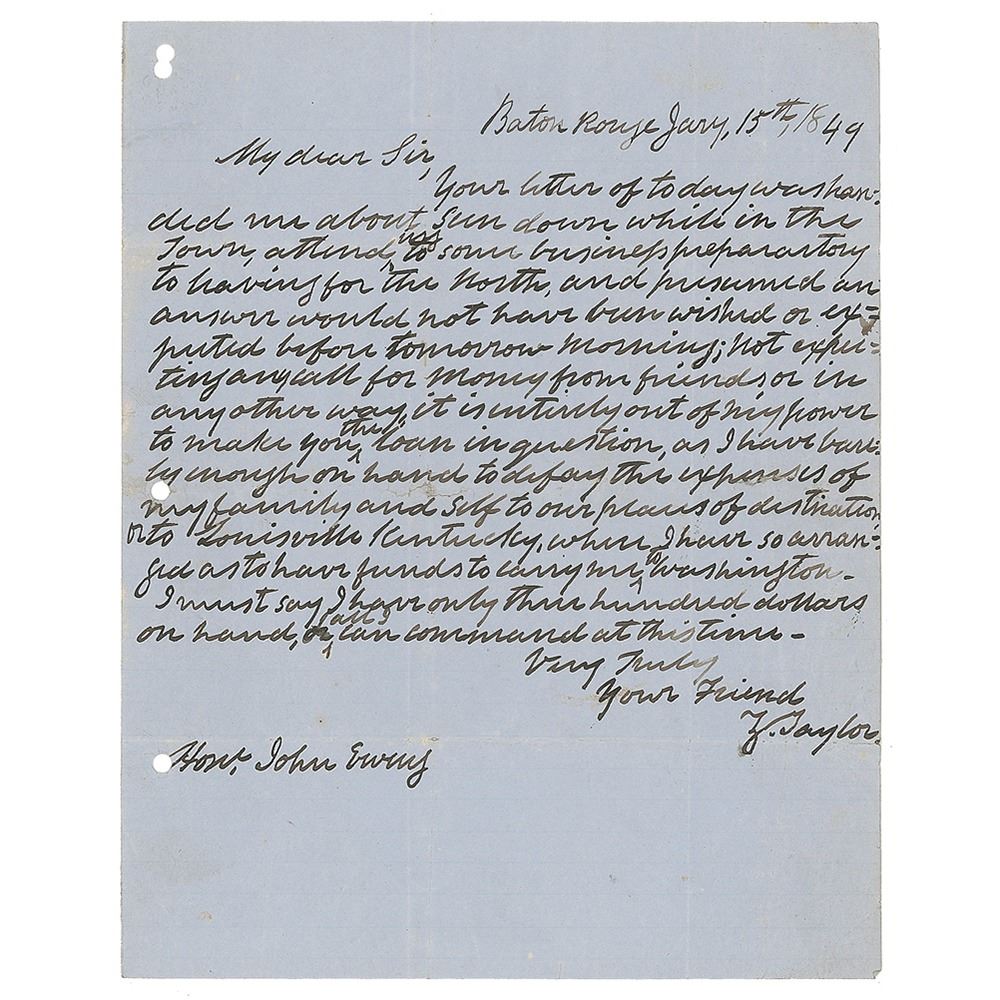 Baton Rouge Jany, 15th, 1849
My dear Sir,
Your letter of today was han=
ded me about sun down while in the
Town, attending to some business preparatory
to leaving for the North, and presumed an
answer would not have been wished or ex=
pected before tomorrow morning; Not expec=
ting any call for money from friends, or in
any other way, it is entirely out of my power
to make you the loan in question, as I have bare=
ly enough on hand to defay the expenses of
my family and self to our places of destination
or to Louisville Kentucky, where I have so arran=
ged as to have funds to carry me to Washington -
I must say I have only three hundred dollars
on hand, all I can command at this time -
Very Truly
Your Friend
Z. Taylor.
Honl. John Ewing